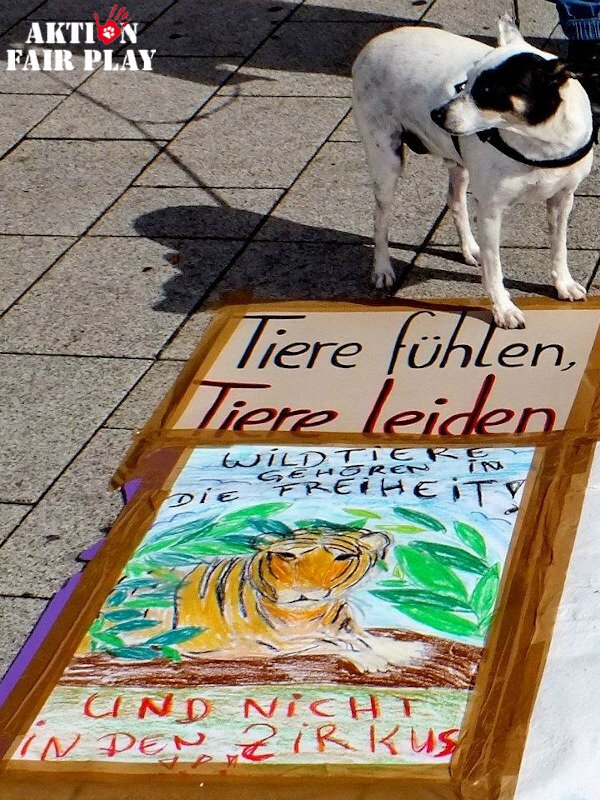 AKTION
FAIR PLAY
Tiere fühlen,
Tiere leiden
WILDTIERE
GEHÖREN IN
DIE FREIHEIT!
UND NICHT
iN DEN ZiRKUS